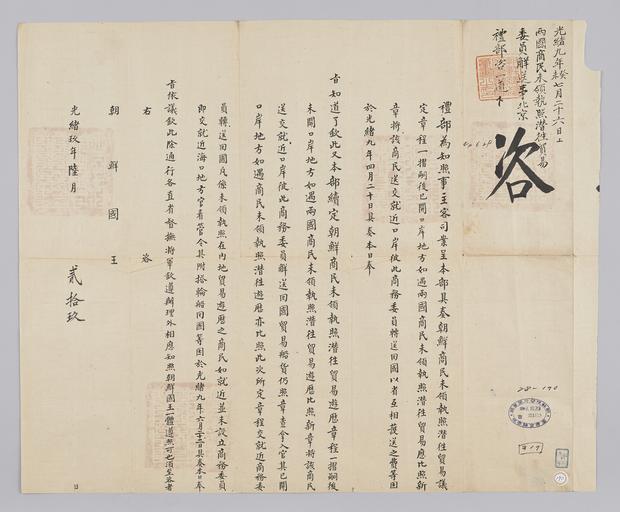 光緖九年癸未七月二十六日
兩國商民未領執照潛往貿易
委員解送事北京
禮部咨一道
咨
禮部爲知照事主客司案呈本部具奏朝鮮商民未領執照潛往貿易議
定章程一摺嗣後已開口岸地方如遇兩國商民未領執照潛往貿易應比照新
章將該商民送交就近口岸彼此商務委員轉送回國以省互相護送之費等因
於光緖九年四月二十日具奏本日奉
旨知道了欽此又本部續定朝鮮商民未領執照潛往貿易遊歷章程一摺嗣後
未開口岸地方如遇兩國商民未領執照潛往貿易遊歷比照新章將該商民
送交就近口岸彼此商務委員解送回國貿易船貨仍照章查拿入官其已開
口岸地方如遇商民未領執照潛往遊歷亦比照此次所定章程交就近商務委
員轉送回國其僅未領執照在內地貿易遊歷之商民如就近並未設立商務委員
卽交就近海口地方官看管令其附搭輪船回國等因於光緖九年六月二十二日具奏本日奉
旨依議欽此除通行各直省督撫將軍欽遵辦理外相應知照朝鮮國王一體遵照可也須至咨者
右 咨
朝鮮國王
光緖玖年陸月 貳拾玖 日
28-170
917